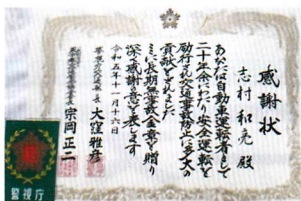 感謝状
志村和亮 殿
あなたは自動車運転者として
二十年余にわたり安全運転を
励行され交通事故防止に多大の
貢献をされました
ここに長期無事故会章を贈り
深く感謝の意を表します
令和五年十一月十六日
警視庁交通部長 大窪雅彦
宗岡正二
警視庁